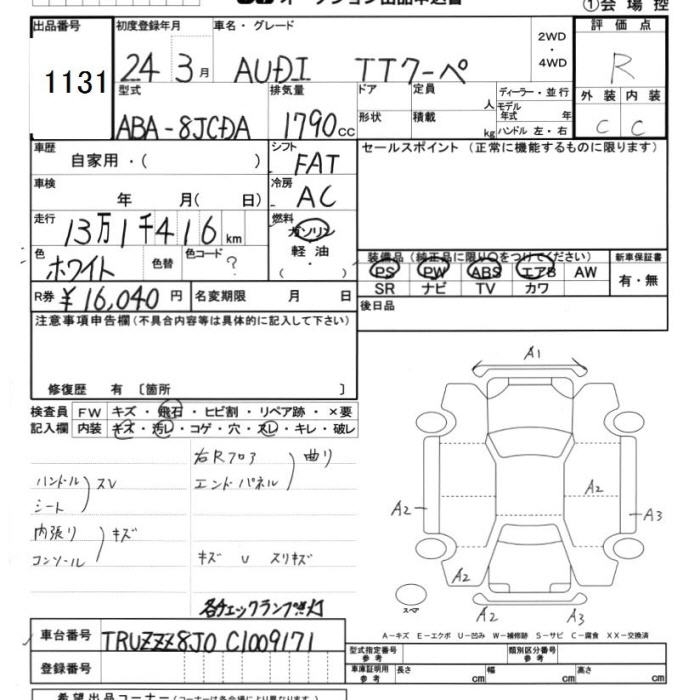 オークション出品申込書
①会場控
出品番号
1131
初度登録年月
24 3月
車名・グレード
AUDI TTクーペ
2WD
・
4WD
評価点
R
型式
ABA-8JCDA
排気量
1790cc
ドア
定員
人
形状
積載
kg
ディーラー・並行
モデル年式 年
ハンドル 左・右
外装 内装
C C
車歴
自家用・( )
シフト
FAT
セールスポイント (正常に機能するものに限ります)
車検
年 月( 日)
冷房
AC
走行
13万1千416km
燃料
ガソリン
軽油
・
( )
色
ホワイト
色替
色コード
?
装備品 (純正品に限り○をつけてください)
PS PW ABS エアB AW
SR ナビ TV カワ
新車保証書
有・無
R券 ¥16,040円
名変期限 月 日
後日品
注意事項申告欄(不具合内容等は具体的に記入して下さい)
修復歴 有 〔箇所 〕
検査員記入欄
FW キズ・飛石・ヒビ割・リペア跡・×要
内装 キズ・汚レ・コゲ・穴・スレ・キレ・破レ
右Rフロア
エンドパネル
曲り
ハンドル
シート
スレ
内張り
コンソール
キズ
キズ U スリキズ
各チェックランプ点灯
A1
A2
A2
A3
A2
A2
A3
スペア
A-キズ E-エクボ U-凹み W-補修跡 S-サビ C-腐食 XX-交換済
車台番号
TRUZZZ8J0 C1009171
登録番号
型式指定番号
参考
類別区分番号
参考
車庫証明用
参考
長さ cm
幅 cm
高さ cm
希望出品コーナー(コーナーは各会場により異なります)